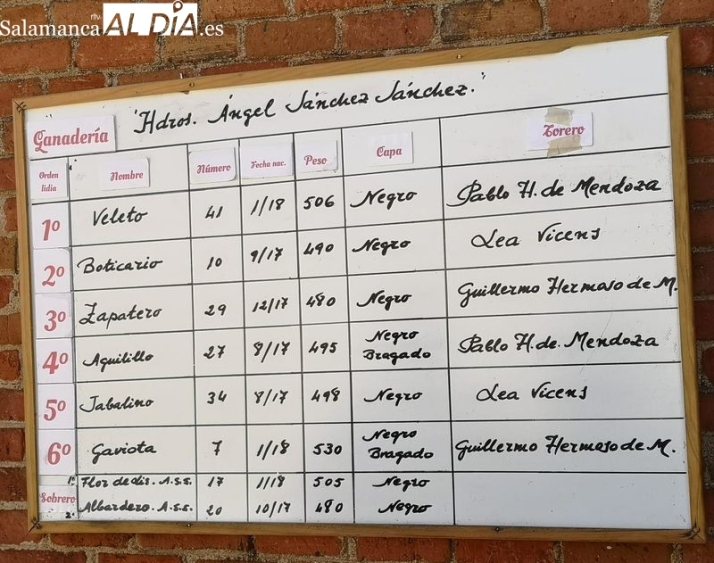 Salamanca rtv AL DÍA .es
Ganadería "Hdros. Ángel Sánchez Sánchez."
Orden lidia Nombre Número Fecha nac. Peso Capa Torero
1º Veleto 41 1/18 506 Negro Pablo H. de Mendoza
2º Boticario 10 9/17 490 Negro Lea Vicens
3º Zapatero 29 12/17 480 Negro Guillermo Hermoso de M.
4º Aguilillo 27 8/17 495 Negro Bragado Pablo H. de Mendoza
5º Jabalino 34 8/17 498 Negro Lea Vicens
6º Gaviota 7 1/18 530 Negro Bragado Guillermo Hermoso de M.
Sobrero 1º Flor de lis. A.S.S. 17 1/18 505 Negro
2º Albardero. A.S.S. 20 10/17 480 Negro